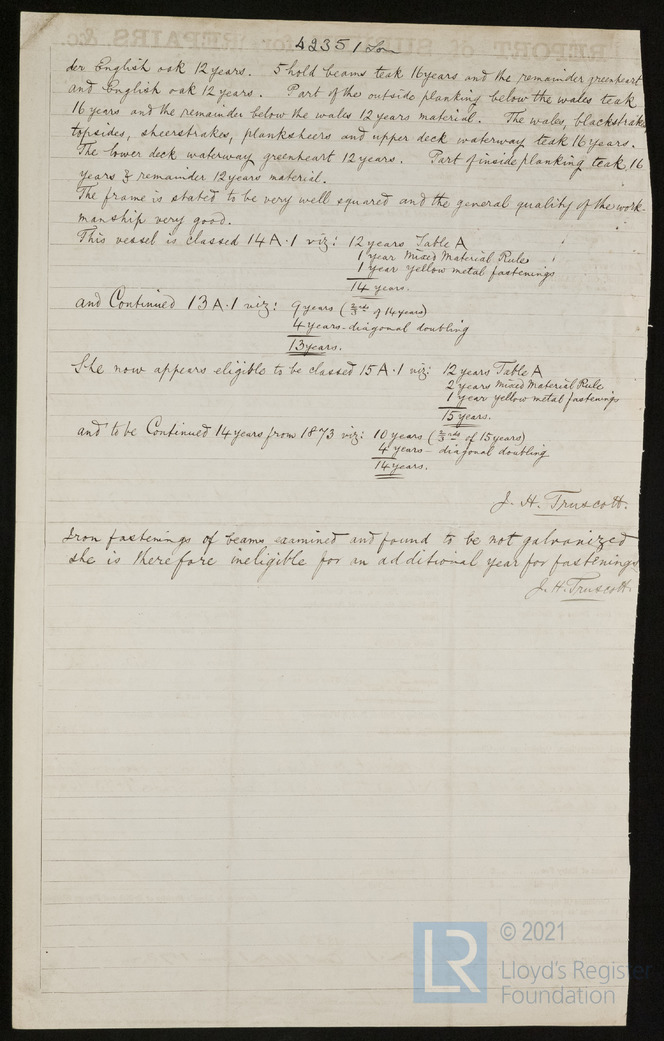 42351 Lon
der English oak 12 years. 5 hold beams teak 16 years and the remainder greenheart
and English oak 12 years. Part of the outside planking below the wales teak
16 years and the remainder below the wales 12 years material. The wales, blackstrakes,
topsides, sheerstrakes, planksheers and upper deck waterway teak 16 years.
The lower deck waterway greenheart 12 years. Part of inside planking teak 16
years & remainder 12 years material.
The frame is stated to be very well squared and the general quality of the work-
manship very good.
This vessel is classed 14 A.1 viz: 12 years Table A
1 year Mixed Material Rule
1 year yellow metal fastenings
14 years.
and Continued 13 A.1 viz: 9 years (2/3rds of 14 years)
4 years - diagonal doubling
13 years.
She now appears eligible to be classed 15 A.1 viz: 12 years Table A
2 years Mixed Material Rule
1 year yellow metal fastenings
15 years.
and to be Continued 14 years from 1873 viz: 10 years (2/3rds of 15 years)
4 years - diagonal doubling
14 years.
J. H. Truscott.
Iron fastenings of beams examined and found to be not galvanized
she is therefore ineligible for an additional year for fastenings
J. H. Truscott
LR
© 2021
Lloyd's Register
Foundation